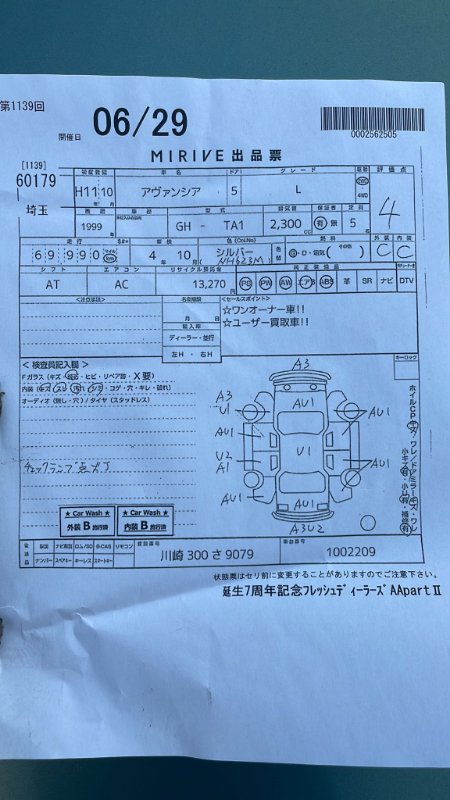 第1139回
開催日 06/29
0002562505
MIRIVE出品票
[1139]
60179
埼玉
初度登録 車名 ドア グレード 評価点
H11 10 アヴァンシア 5 L 4
1999 GH - TA1 2,300 有 無 5
走行 車検 色(Col.No) 燃料 外装 内装
69,990 4 10 シルバー NH623M C C
シフト エアコン リサイクル預託金 純正装備品
AT AC 13,270 PS PW AW エアB ABS 革 SR ナビ DTV
<注意事項> 名変期限 <セールスポイント>
月 日 ☆ワンオーナー車!!
輸入車 ☆ユーザー買取車!!
ディーラー・並行
左H ・ 右H
キーロック
<検査員記入欄>
Fガラス(キズ・飛石・ヒビ・リペア跡・X要)
内装(キズ・スレ・汚れ・シミ・コゲ・穴・キレ・割れ)
オーディオ(無し・穴)/タイヤ(スタッドレス)
チェックランプ点灯
A3
A3
U1
AU1
AU1
AU1
AU1
U2
A1
U1
AU1
AU1
AU1
A3U2
★ Car Wash ★
外装 B 施行済
★ Car Wash ★
内装 B 施行済
登録番号 車台番号
川崎 300 さ 9079 1002209
状態票はセリ前に変更することがありますのでご注意下さい。
誕生7周年記念フレッシュディーラーズAApartⅡ